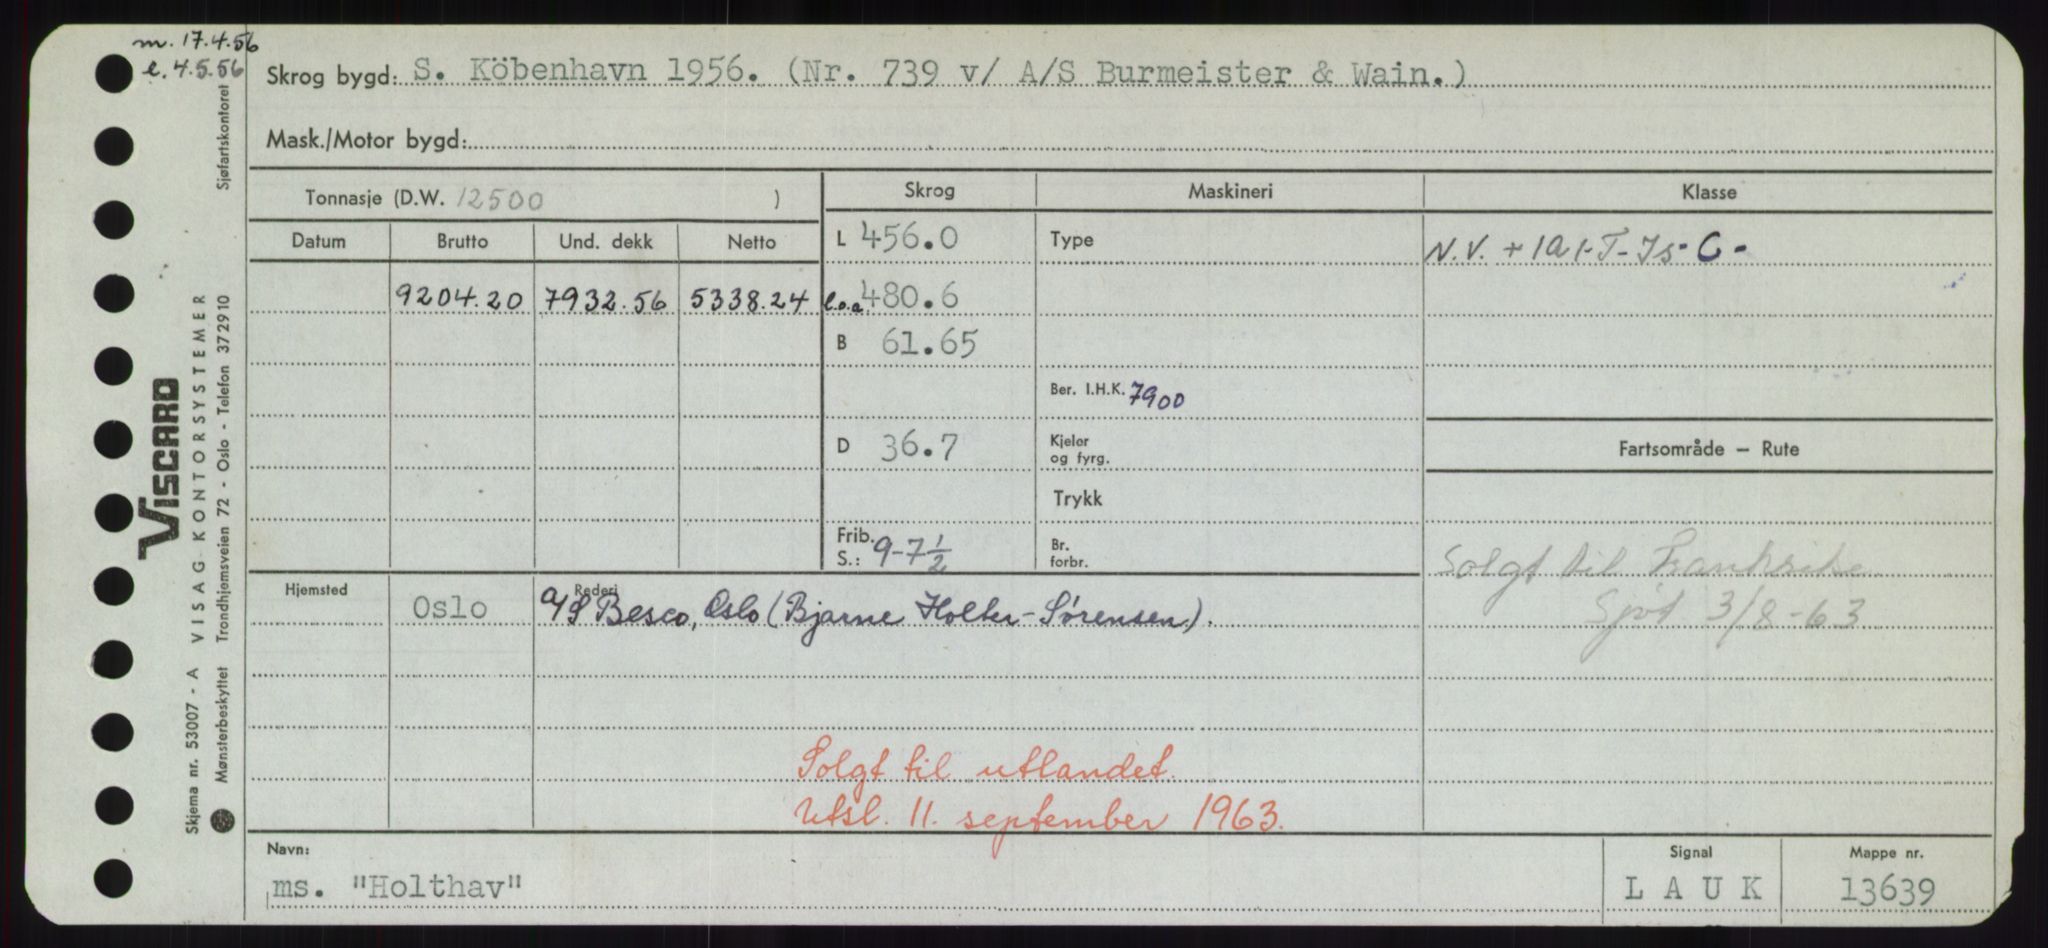 m. 17.4.56
l. 4.5.56
Skrog bygd: S. Köbenhavn 1956. (Nr. 739 v/ A/S Burmeister & Wain.)
Mask./Motor bygd:
Tonnasje (D.W. 12500 )
Skrog Maskineri Klasse
Datum Brutto Und. dekk Netto
L 456.0 Type N.V. + 1A1-T-Is-C-
9204.20 7932.56 5338.24 l.o.a. 480.6
B 61.65
Ber. I.H.K. 7900
D 36.7 Kjeler og fyrg. Fartsområde – Rute
Trykk
Frib. S.: 9-7½ Br. forbr.
Solgt til Frankrike
Sjøt 3/8-63
Hjemsted Oslo Rederi A/S Besco, Oslo (Bjarne Holter-Sørensen).
Solgt til utlandet.
Utsl. 11. september 1963.
Navn: Signal Mappe nr.
ms. "Holthav" L A U K 13639
Sjøfartskontoret
VISCARD
VISAG KONTORSYSTEMER
Trondhjemsveien 72 - Oslo - Telefon 372910
Skjema nr. 53007 - A
Mønsterbeskyttet